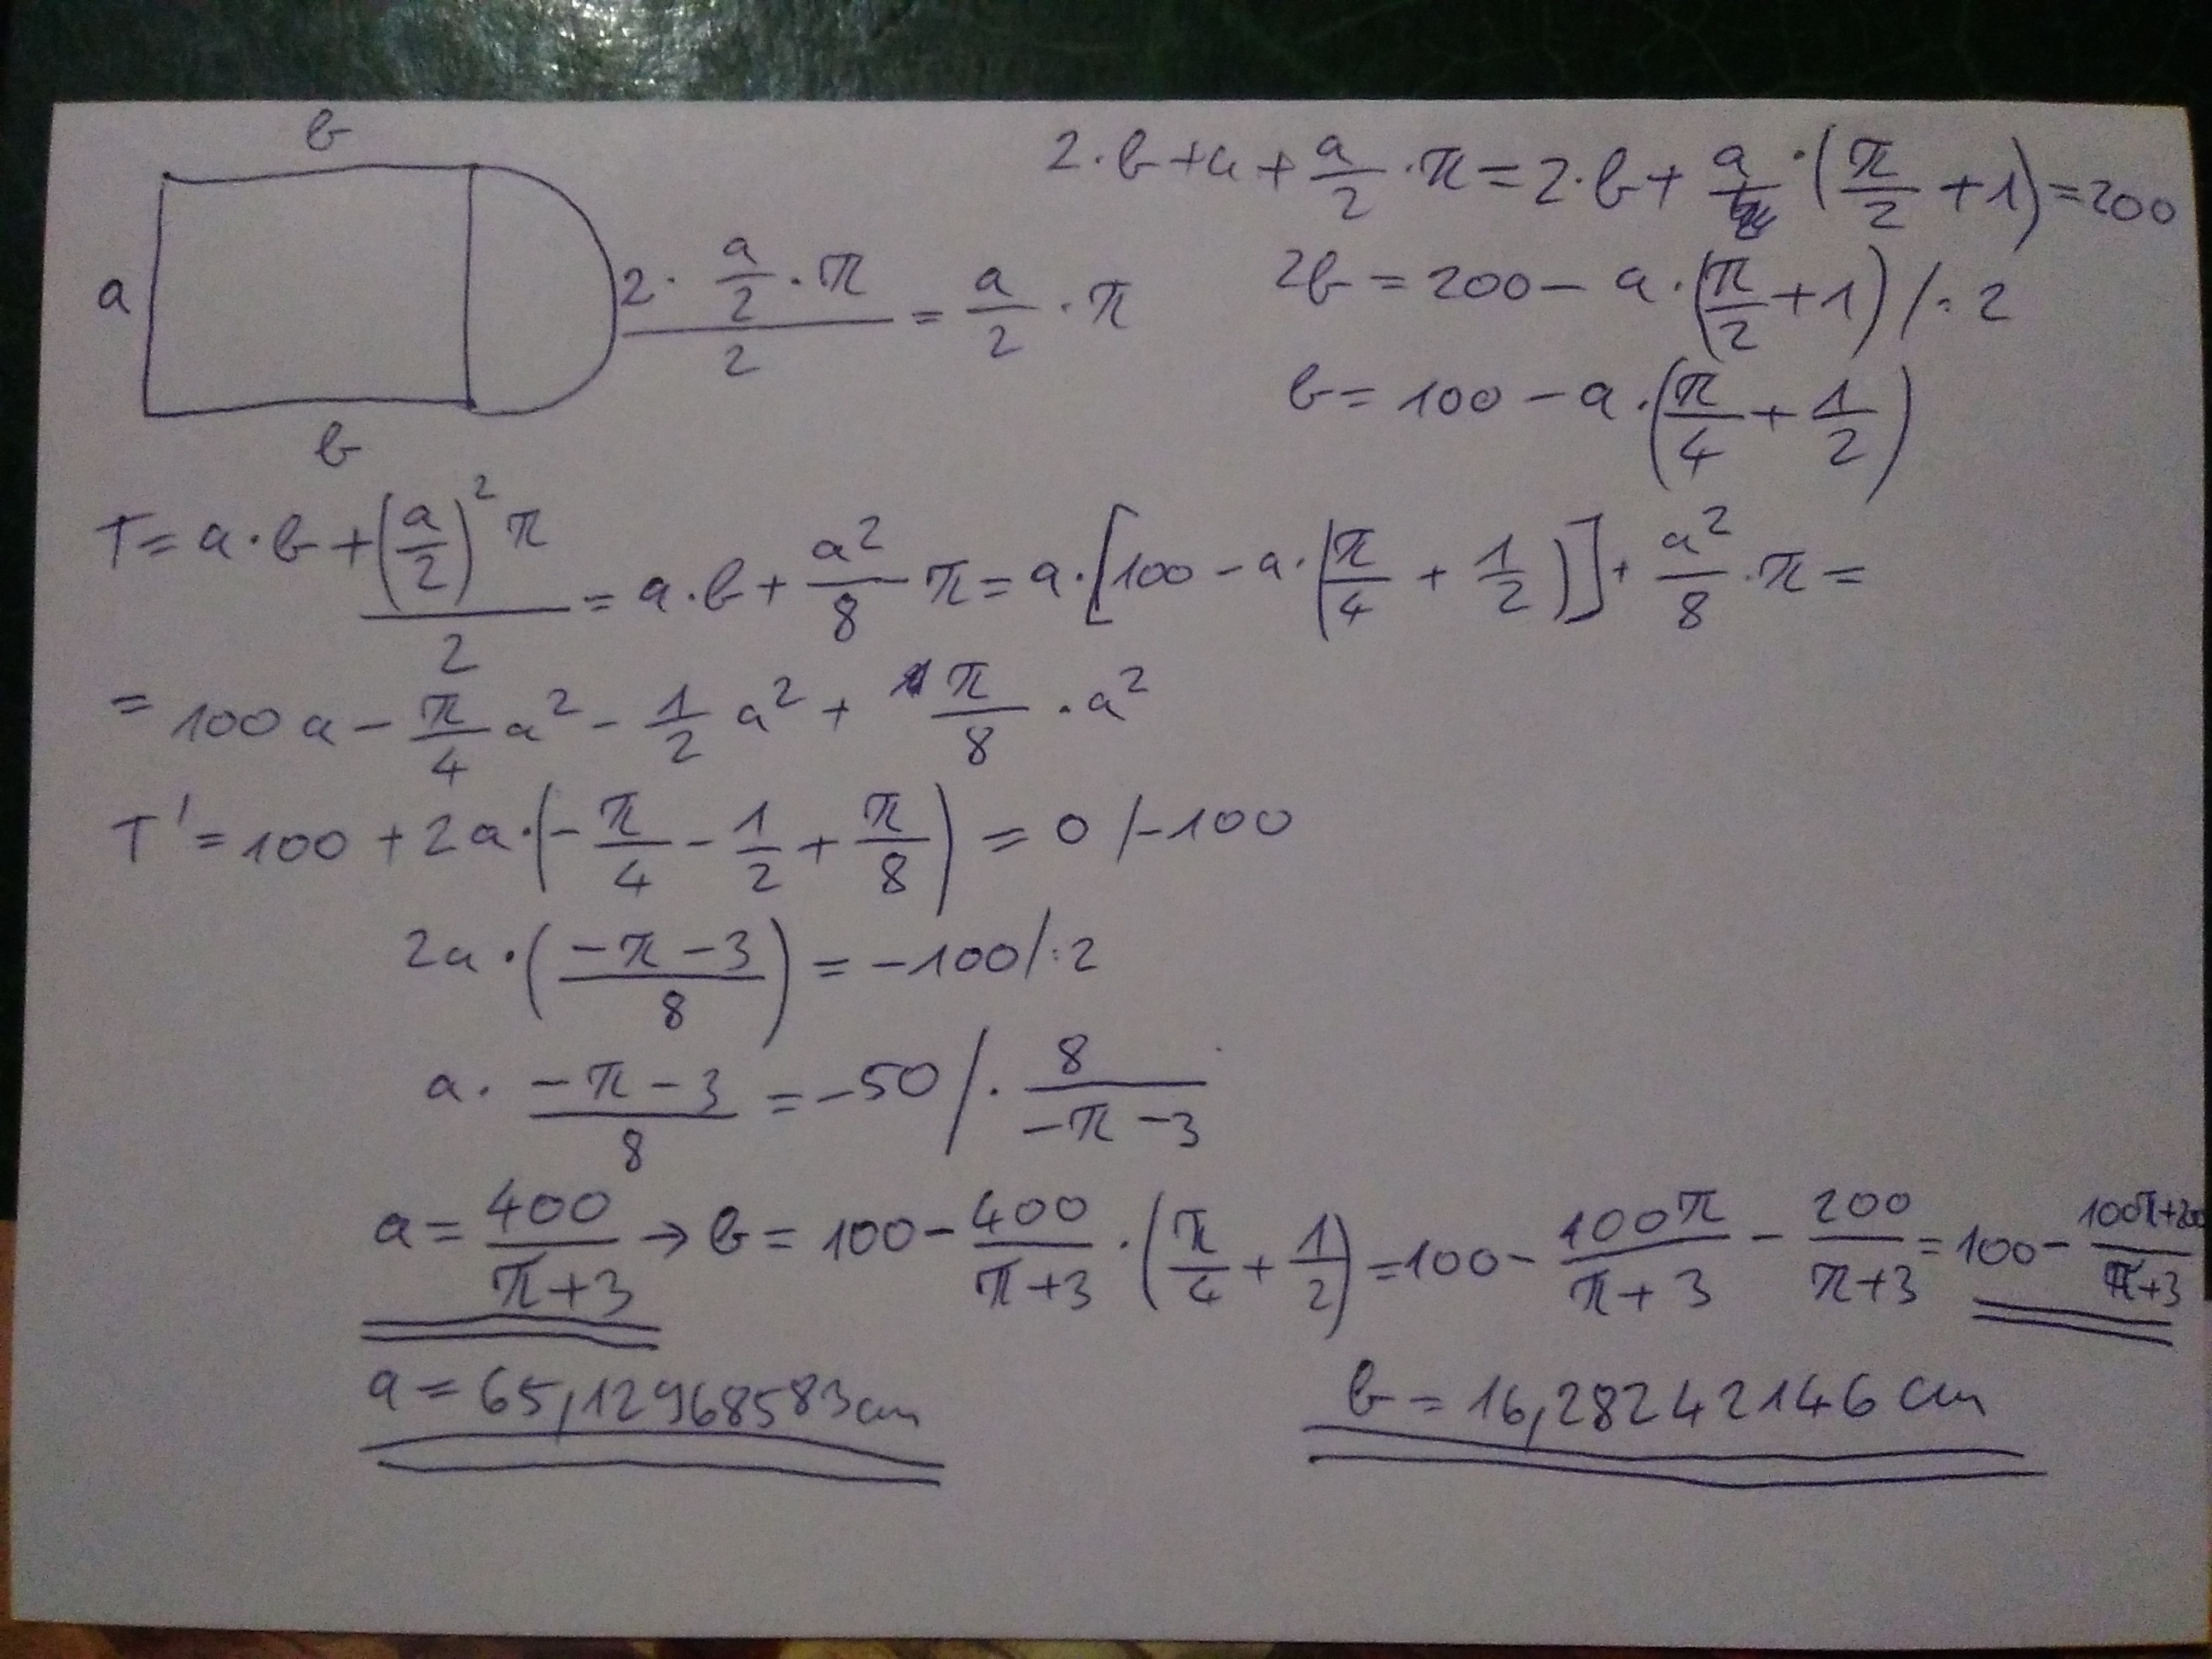 b
a
b
2·(a/2)·π / 2 = a/2 · π
2·b+a+ a/2 ·π = 2·b+ a·(π/2 +1) = 200
2b = 200 − a·(π/2 +1) /:2
b = 100 − a·(π/4 + 1/2)
T = a·b + (a/2)² π / 2 = a·b + a²/8 π = a·[100 − a·(π/4 + 1/2)] + a²/8 ·π =
= 100a − π/4 a² − 1/2 a² + π/8 · a²
T' = 100 + 2a·(− π/4 − 1/2 + π/8) = 0 /−100
2a·(−π−3 / 8) = −100 /:2
a· −π−3 / 8 = −50 /· 8 / −π−3
a = 400/π+3 → b = 100 − 400/π+3 ·(π/4 + 1/2) = 100 − 100π/π+3 − 200/π+3 = 100 − 100π+200/π+3
a = 65,12968583 cm
b = 16,28242146 cm